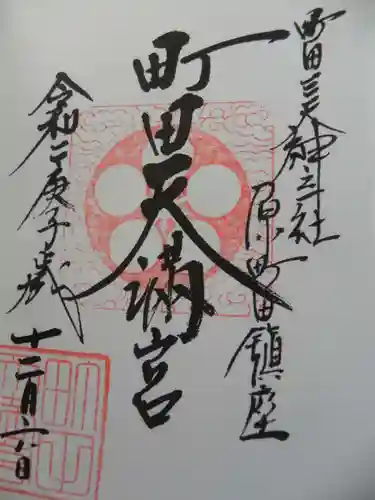 町田三天神之一社
原町田鎮座
町田天満宮
令和二庚子歳
十二月六日